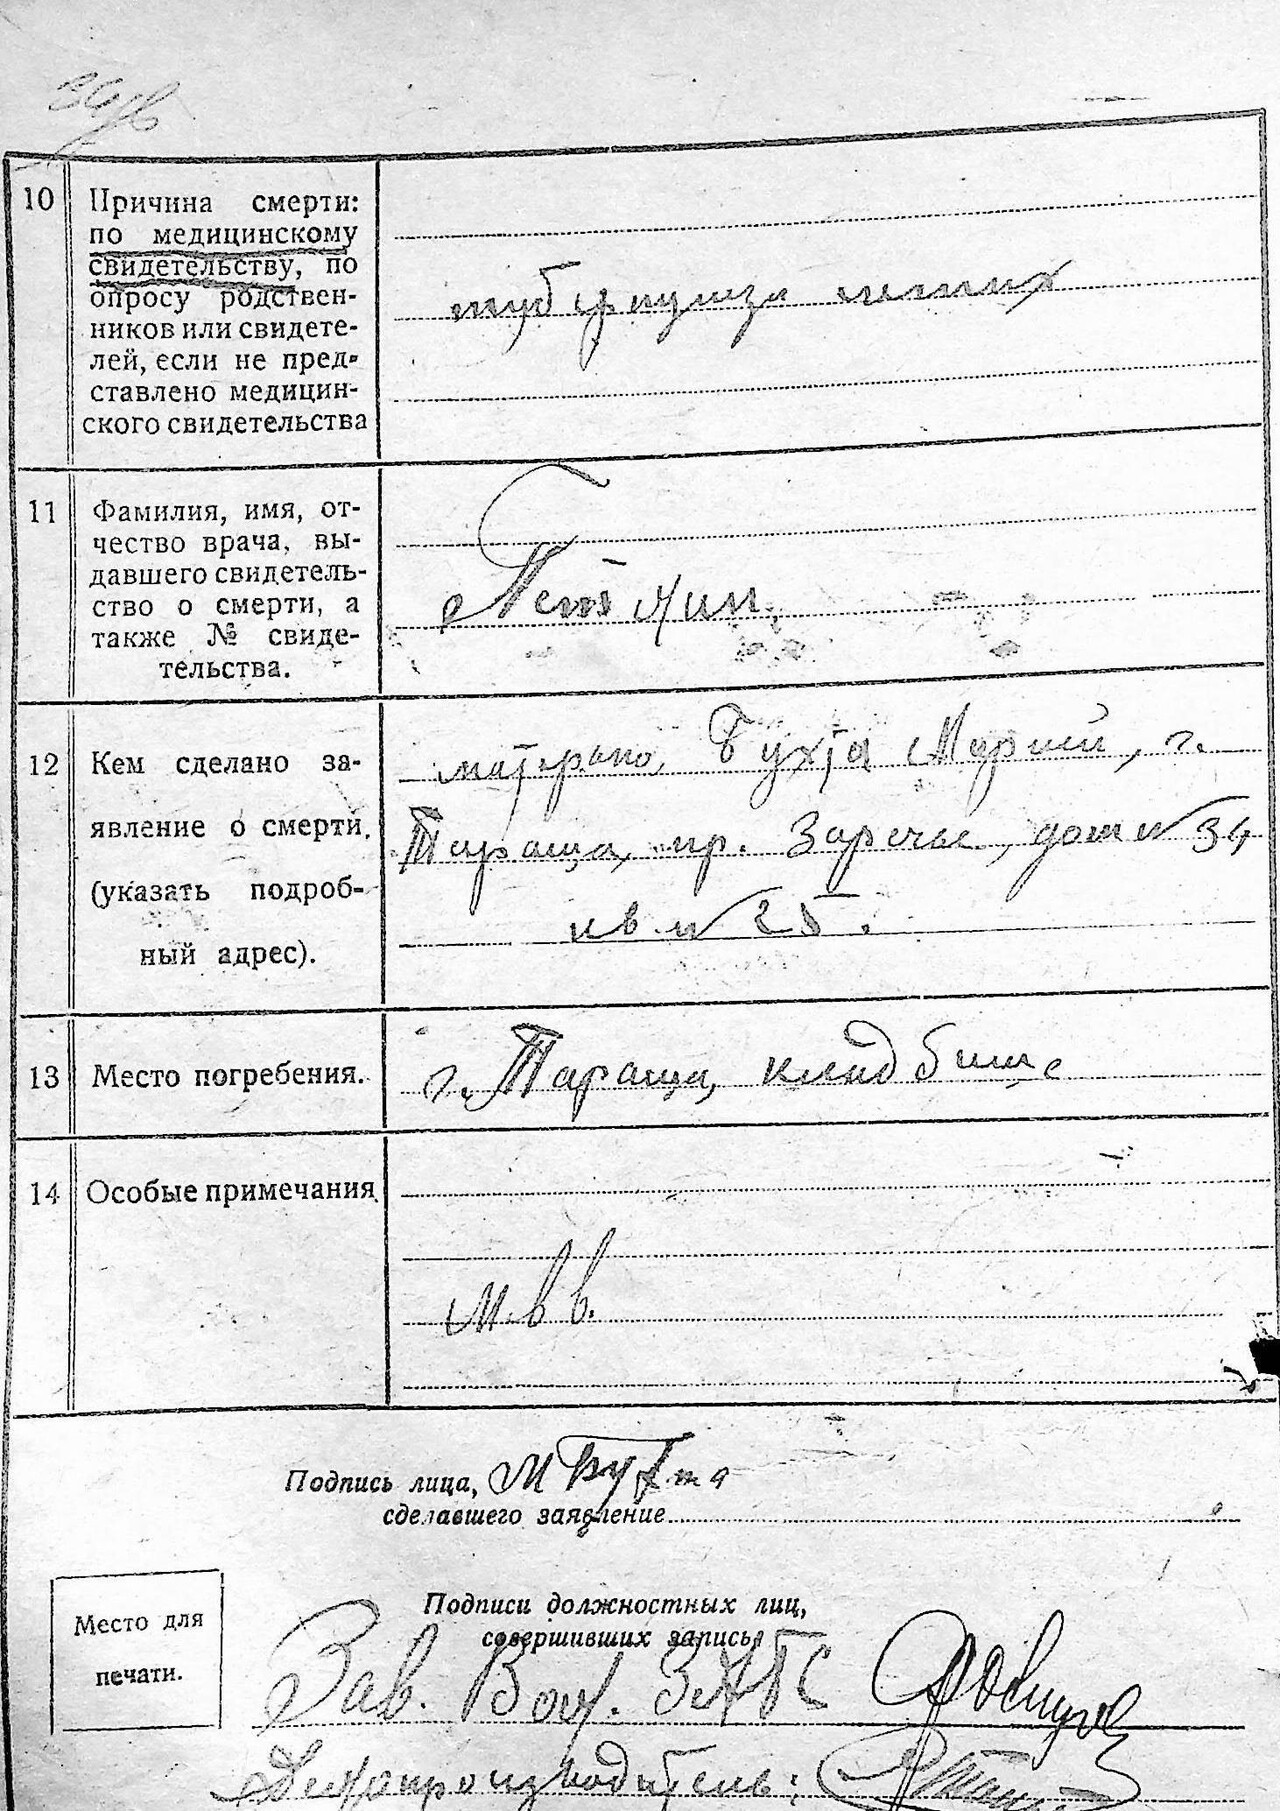 10 Причина смерти:
по медицинскому
свидетельству, по
опросу родствен-
ников или свидете-
лей, если не пред-
ставлено медицин-
ского свидетельства
туберкулеза легких
11 Фамилия, имя, от-
чество врача, вы-
давшего свидетель-
ство о смерти, а
также № свиде-
тельства.
12 Кем сделано за-
явление о смерти,
(указать подроб-
ный адрес).
матерью Бухта Марией, г.
Тараща, пр. Заречье, дом № 34
кв № 25.
13 Место погребения.
г. Тараща, кладбище
14 Особые примечания
Подпись лица, М Бухта
сделавшего заявление
Место для
печати.
Подписи должностных лиц,
совершивших запись
Зав. ЗАГС
Делопроизводитель: